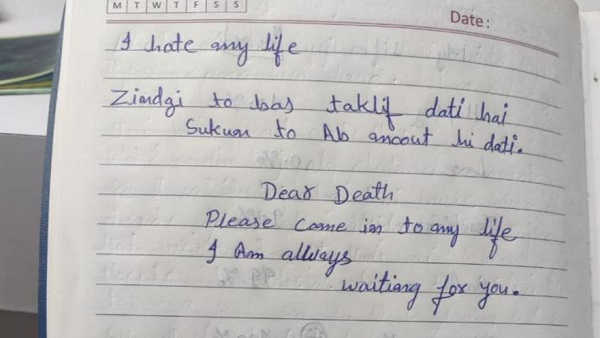 M T W T F S S
Date:
I hate my life
Zindgi to bas taklif dati hai
Sukun to Ab amout hi dati.
Dear Death
Please come in to my life
I Am allways
waiting for you.